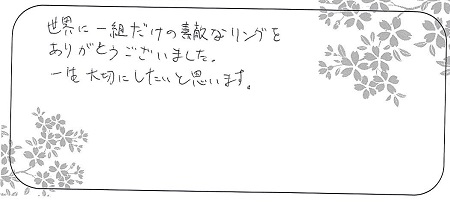 世界に一組だけの素敵なリングを
ありがとうございました。
一生大切にしたいと思います。